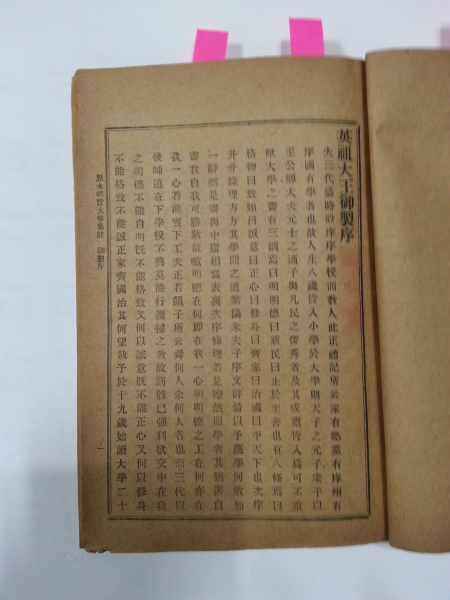 英祖大王御製序
夫三代盛時設庠序學校而敎人此正禮記所云家有塾黨有庠州有
序國有學者也故人生八歲皆入小學於大學則天子之元子衆子以
至公卿大夫元士之適子與凡民之俊秀者及其成童皆入焉可不重
歟大學之書有三綱焉曰明明德曰新民曰止於至善也有八條焉曰
格物曰致知曰誠意曰正心曰修身曰齊家曰治國曰平天下也次序
井井條理方方其學問之道紫陽朱夫子序文詳備以予蔑學何敢加
一辭然是書與中庸相爲表裏次序條理若是瞭然而學者其猶書自
書我自我可勝歎哉噫明德在何卽在我一心明明德之工在何亦在
我一心若能實下工夫正若顔子所云舜何人余何人者也而三代以
後師道在下學校不興莫能行灑掃之敎故筋骸已强利欲交中在我
之明德不能自明旣不能格致又何以誠意旣不能正心又何以修身
不能格致不能誠正家齊國治其何望哉予於十九歲始讀大學二十
原本備旨大學集註 御製序
一